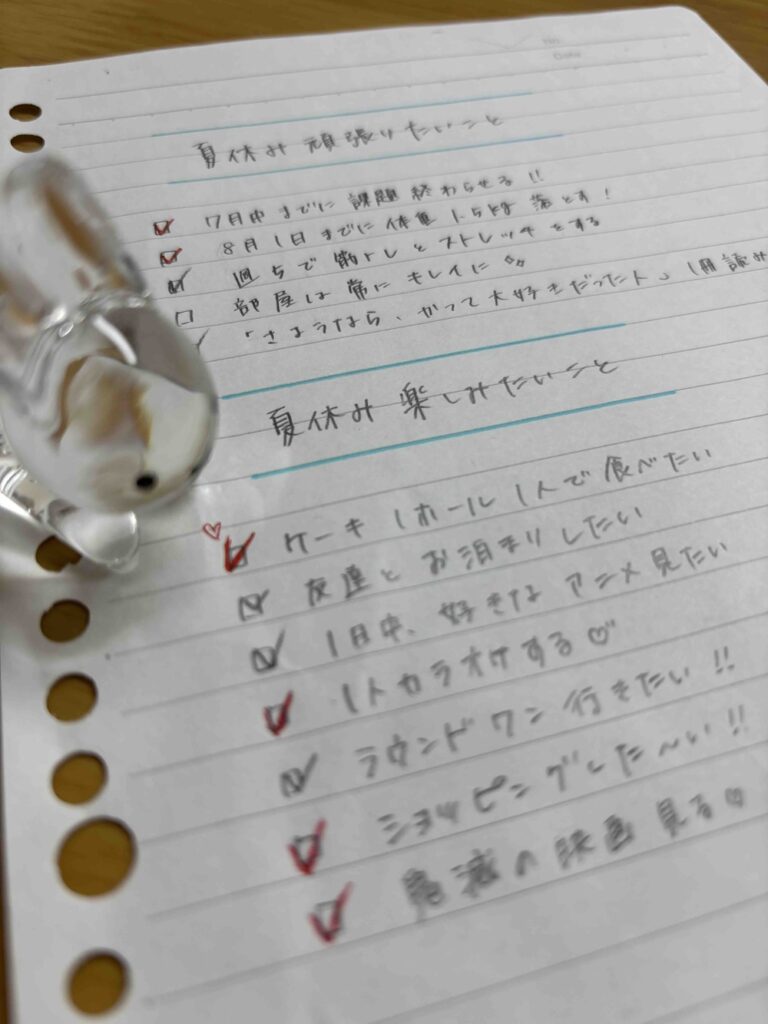 No.
Date
夏休み 頑張りたいこと
7月中までに 課題 終わらせる!!
8月1日までに 体重 1.5kg 落とす!
週5で 筋トレとストレッチをする
部屋は常にキレイに
「さようなら、かつて大好きだった人」 1冊読み
夏休み 楽しみたいこと
ケーキ 1ホール 1人で食べたい
友達とお泊まりしたい
1日中、好きなアニメ見たい
1人カラオケする♡
ラウンドワン行きたい!!
ショッピングした〜い!!
鬼滅の映画見る♡